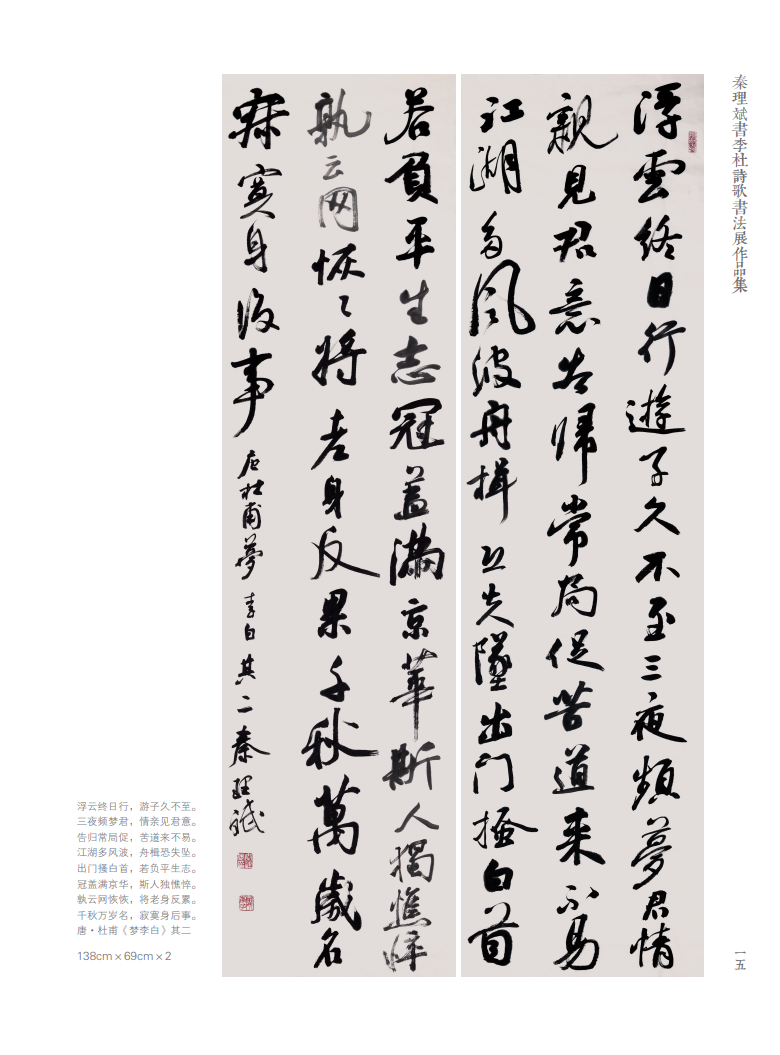 秦理斌書李杜詩歌書法展作品集
浮雲終日行遊子久不至三夜頻夢君情
親見君意告歸常局促苦道来不易
江湖多風波舟楫恐失墜出门搔白首
若負平生志冠盖滿京華斯人獨憔悴
孰云网恢〻将老身反累千秋萬歲名
寂寞身後事 唐杜甫夢李白其二 秦理斌
浮云终日行，游子久不至。
三夜频梦君，情亲见君意。
告归常局促，苦道来不易。
江湖多风波，舟楫恐失坠。
出门搔白首，若负平生志。
冠盖满京华，斯人独憔悴。
孰云网恢恢，将老身反累。
千秋万岁名，寂寞身后事。
唐·杜甫《梦李白》其二
138cm×69cm×2
一五